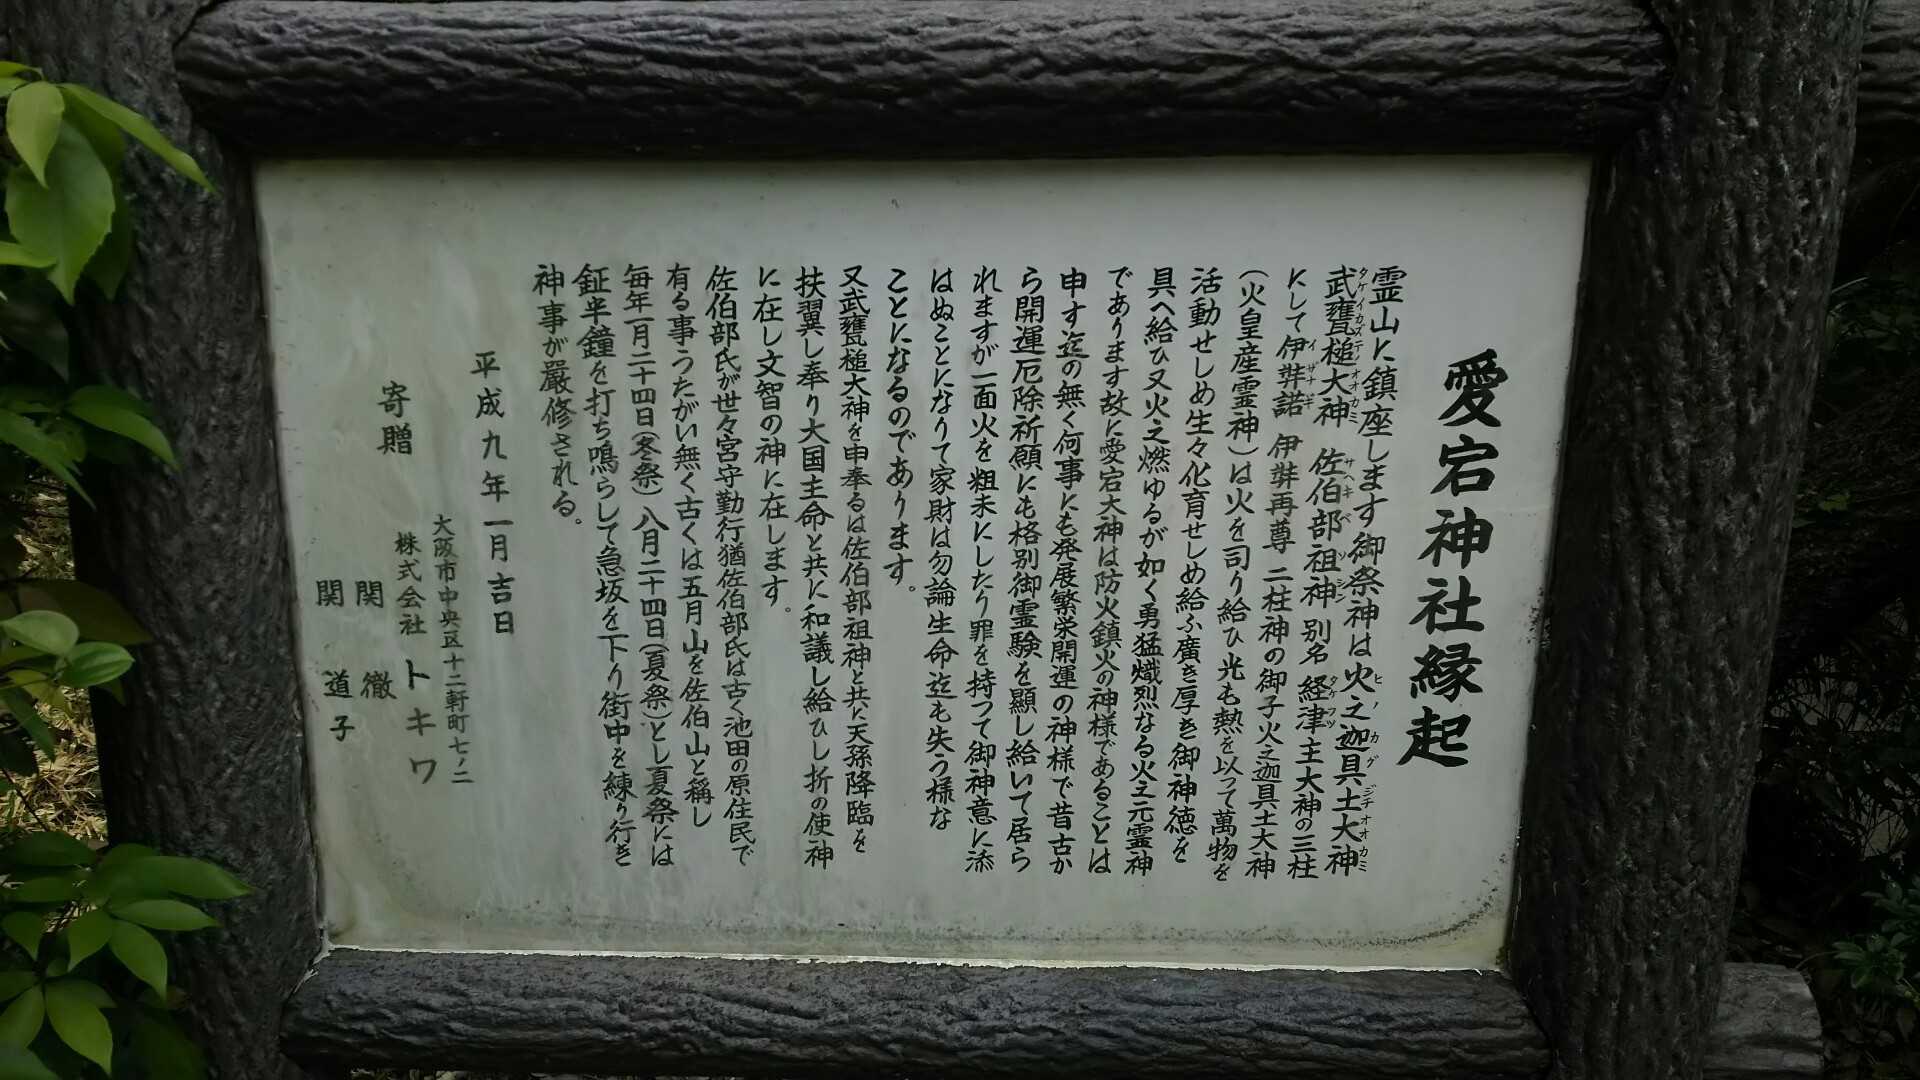 愛宕神社縁起
霊山に鎮座します御祭神は火之迦具土大神
ヒノカグヂチオオカミ
武甕槌大神 佐伯部祖神別名経津主大神の三柱
タケイカズテノオオカミ サヘキベソシン タケフツ
にして伊弉諾 伊弉再尊 二柱神の御子火之迦具土大神
イザナギ
(火皇産霊神)は火を司り給ひ光も熱を以って萬物を
活動せしめ生々化育せしめ給ふ廣き厚き御神徳を
具へ給ひ又火之燃ゆるが如く勇猛熾烈なる火之元霊神
であります故に愛宕大神は防火鎮火の神様であることは
申す迄の無く何事にも発展繁栄開運の神様で昔古か
ら開運厄除祈願にも格別御霊験を顯し給いて居ら
れますが一面火を粗末にしたり罪を持つて御神意に添
はぬことになりて家財は勿論生命迄も失う様な
ことになるのであります。
又武甕槌大神を申奉るは佐伯部祖神と共に天孫降臨を
扶翼し奉り大国主命と共に和議し給ひし折の使神
に在し文智の神に在します。
佐伯部氏が世々宮守勤行猶佐伯部氏は古く池田の原住民で
有る事うたがい無く古くは五月山を佐伯山と稱し
毎年一月二十四日(冬祭)八月二十四日(夏祭)とし夏祭には
鉦半鐘を打ち鳴らして急坂を下り街中を練り行き
神事が嚴修される。
平成九年一月吉日
大阪市中央区十二軒町七ノ二
寄贈 株式会社トキワ
関 徹
関 道子